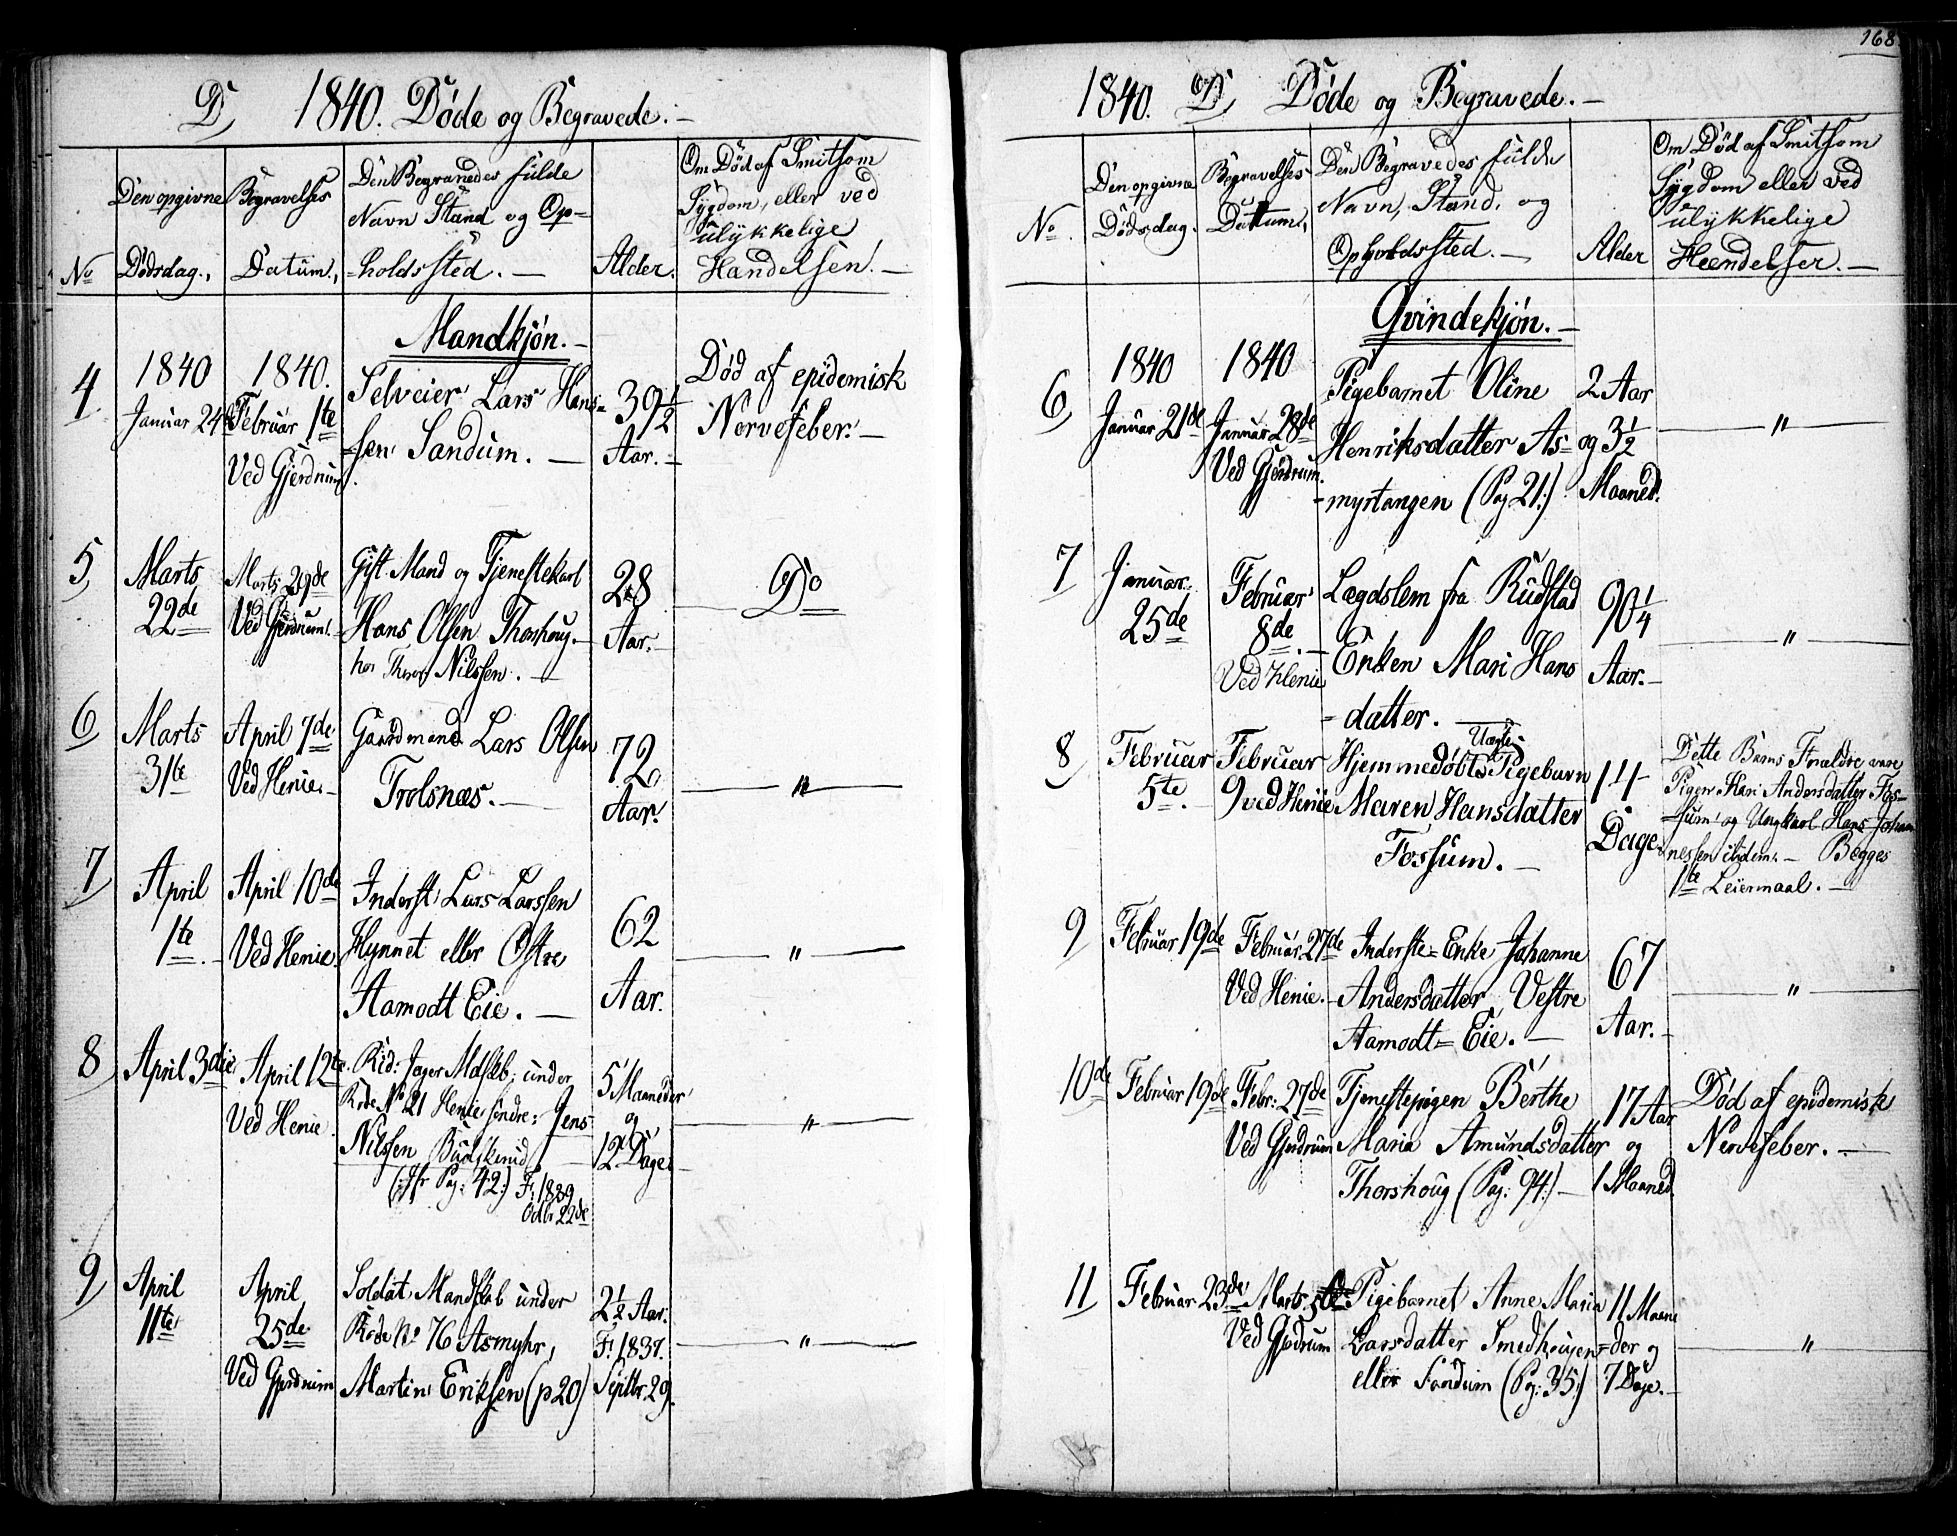 D, 1840. Døde og Begravede. —
No
Den opgivne
Dødsdag.
Begravelses
Datum.
Den Begravedes fulde
Navn Stand og Op=
=holdssted. —
Alder.
Om Død af Smitsom
Sygdom, eller ved
ulykkelige
Handelsen. —
Mandkjøn. —
4,
1840
Januar 24de
1840.
Februar 1te
Ved Gjerdrum.
Selveier Lars Han=
=sen Sandum. —
39½
Aar. —
Død af epidemisk
Nervefeber. —
5,
Marts
22de
Marts 29de
Ved Gjerdrum.
Gift Mand og Tjenestekarl
Hans Olsen Thorshoug. —
hos Nilssen. —
28
Aar. —
Do
6,
Marts
31te
April 7de
Ved Henie. —
Gaardmand Lars Olsen
Trolsnæs. —
72
Aar.
— " —
7,
April
1te
April 10de
Ved Henie.
Inderst Lars Larssen
Hynnet eller Østre
Aamodt Eie. —
62
Aar.
— " —
8,
April 3die
April 12te
Ved Henie.
Rid: Jager Mdskb: under
Rode No 21 Henie søndre: Jens
Nilssen
(:Jfr Pag: 42:) F. 1839
Octbr 22de
5 Maaneder
og
12 Dage. —
— " —
9,
April
11te
April
25de
Ved Gjerdrum
Soldat Mandskab under
Rode No 76 Asmyhr,
Martin Eriksen (p 20)
2½ Aar.
F. 1837.
Septbr. 29.
— " —
168.
1840. D, Døde og Begravede. —
No.
Den opgivne
Dødsdag.
Begravelses
Dattum.
Den Begravedes fulde
Navn, Stand, og
Opholdssted. —
Alder
Om Død af Smitsom
Sygdom eller ved
ulykkelige
Hændelser. —
Qvindekjøn. —
6,
1840
Januar 21de
1840
Januar 28de
Ved Gjerdrum.
Pigebarnet Oline
Henriksdatter As=
=myrtangen (Pag 21:)
2 Aar
og 3½
Maaned.
— " —
7,
Januar.
25de
Februar
8de. —
Ved Henie
Lægdslem fra Rudstad
Enken Mari Hans
=datter. —
90¼
Aar. —
— " —
8,
Februar
5te.
Februar
9 ved Henie
Uægte
Hjemmedøbte Pigebarn
Maren Hansdatter
Fossum. —
14
Dage.
Dette Barns Forældre vare
Pigen Kari Andersdatter Fos=
=sum og Ungkarl Hans Johan
nessen ibidem. — Begges
1te Leiermaal. —
9,
Februar 19de
Februar 27de
Ved Henie. —
Inderste=Enke Johanne
Andersdatter, Vestre
Aamodt=Eie. —
67
Aar. —
— " —
10de
Februar 19de
Febr: 27de
Ved Gjerdrum
Tjenestepigen Berthe
Maria Amundsdatter
Thorshoug (Pag: 94:) —
17 Aar
og
1 Maaned.
Død af epidemisk
Nervefeber. —
11,
Februar 23de
Marts
Ved Gjerdrum
Pigebarnet Anne Maria
Larsdatter Smedhougen
eller Sandum (Pag: 35:)
11 Maane
=der og
7 Dage. —
— " —